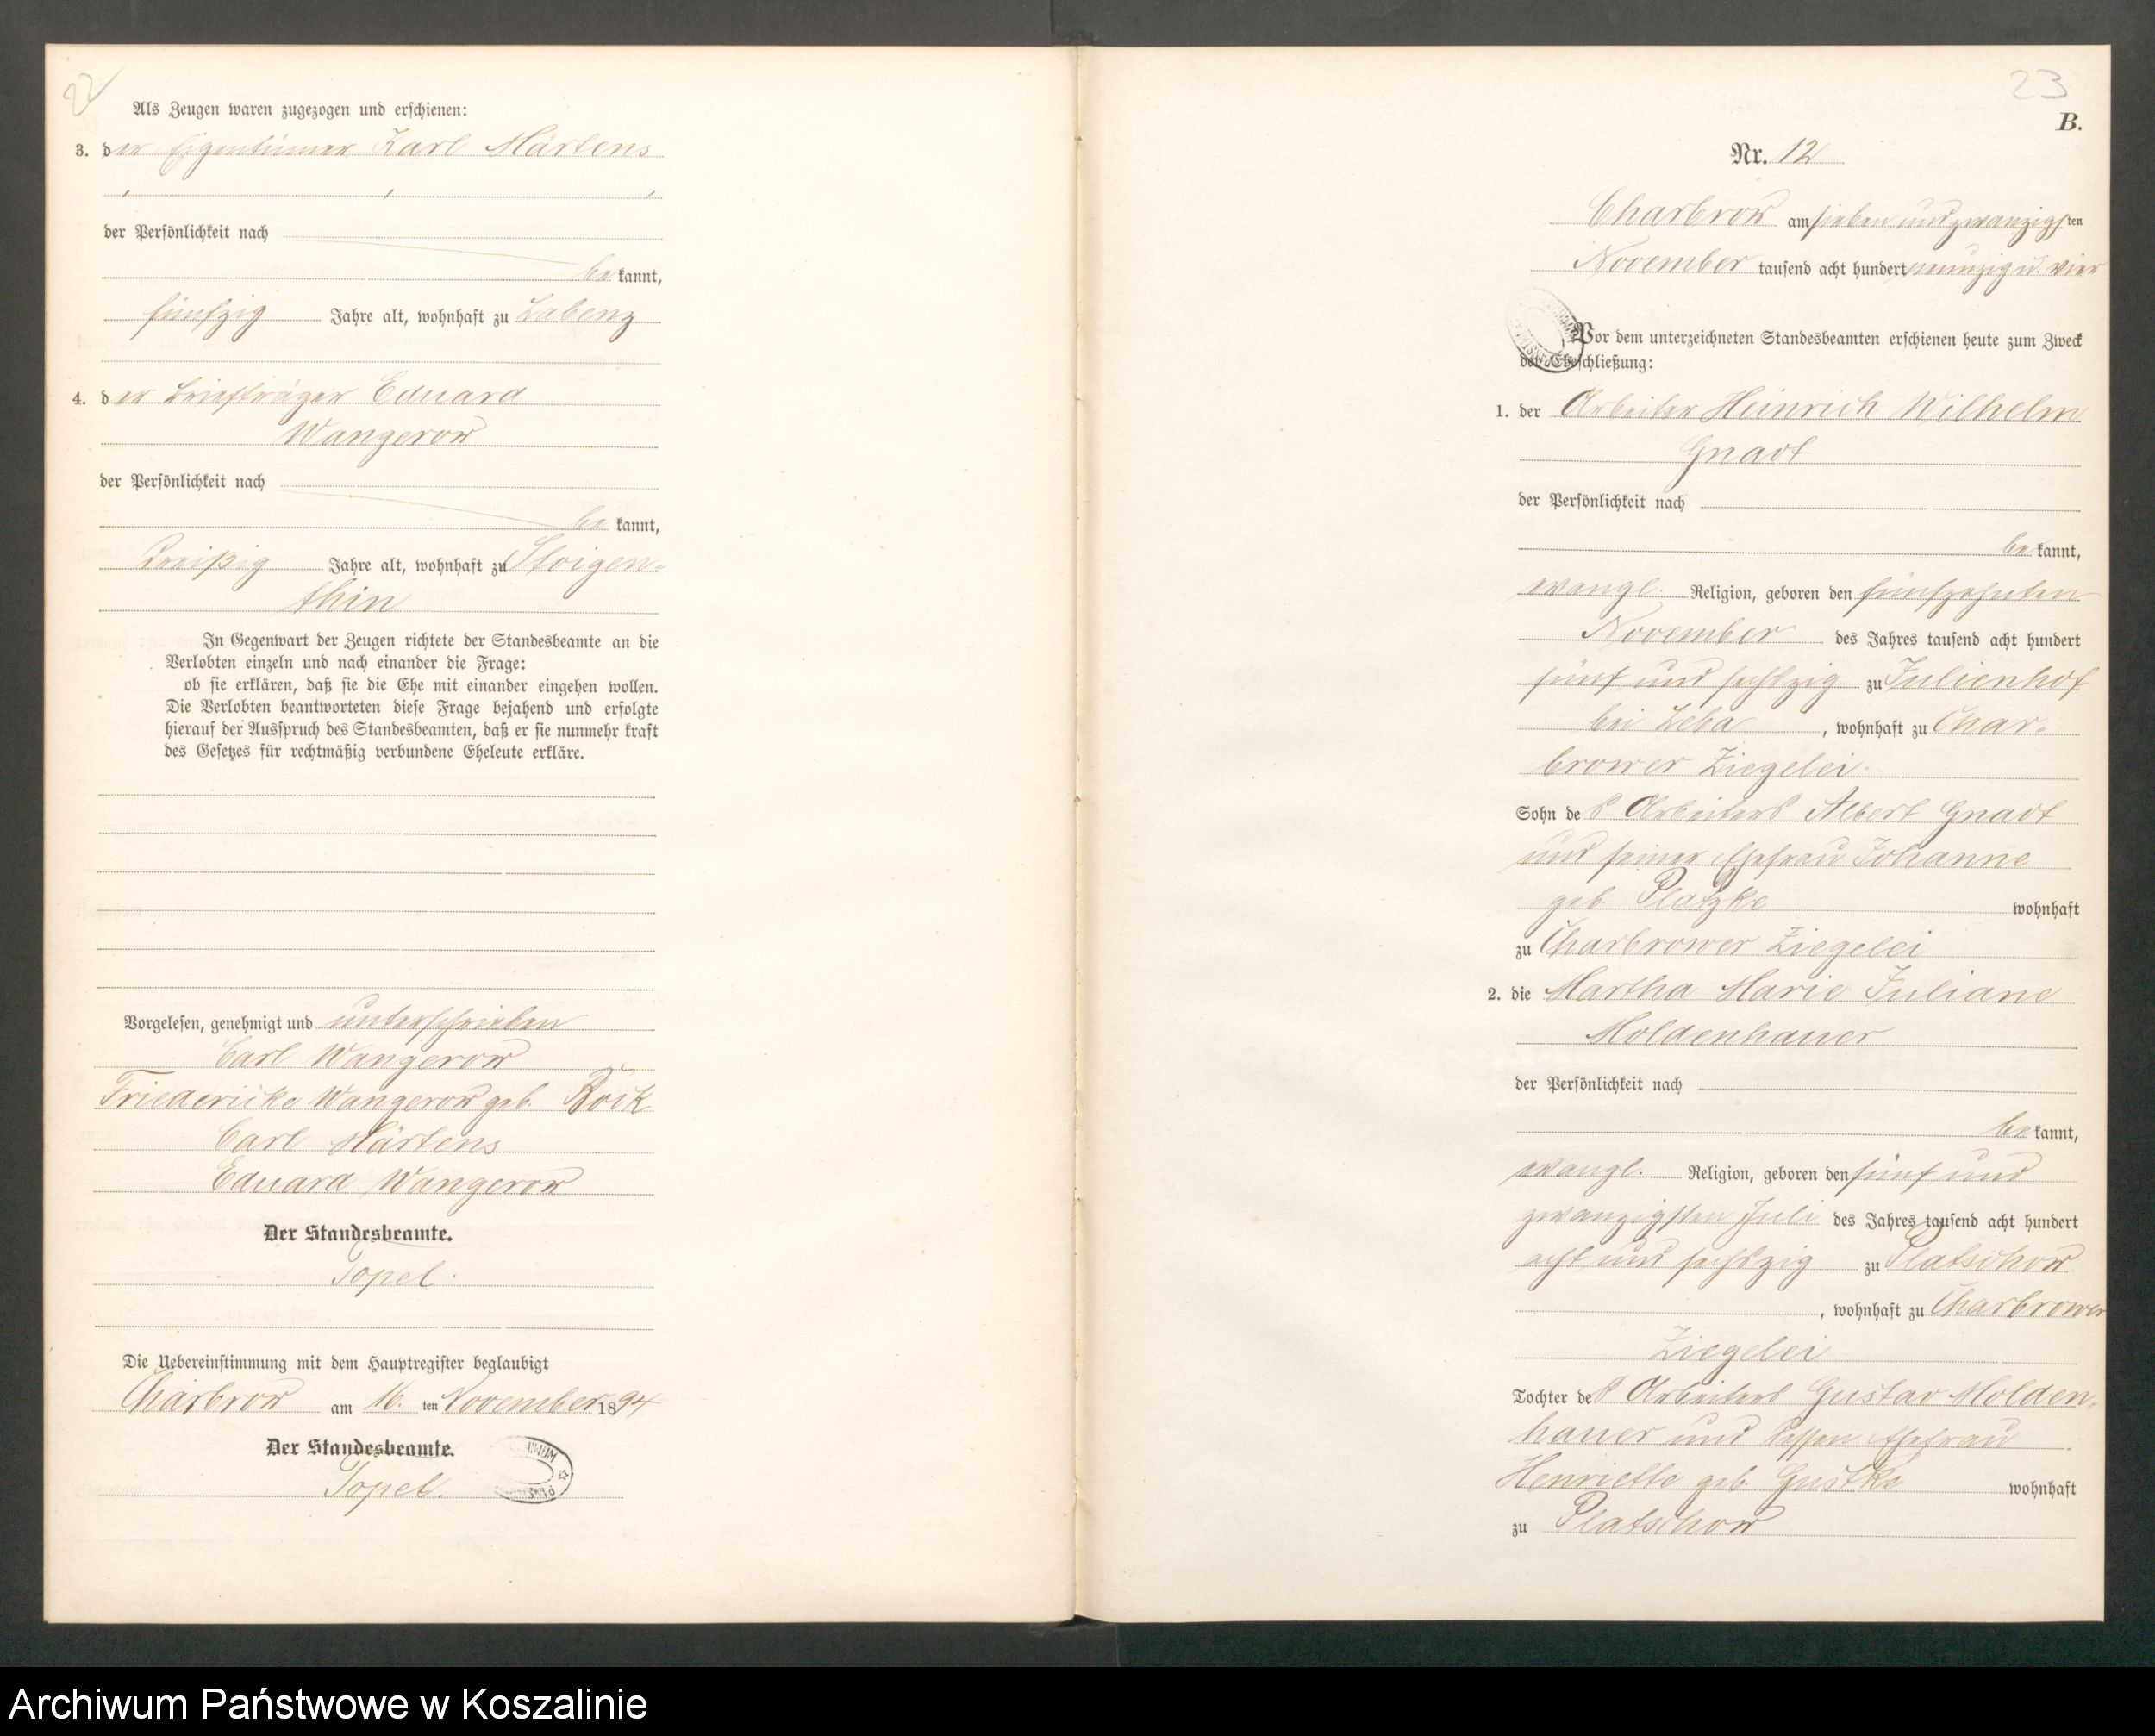 22
Als Zeugen waren zugezogen und erschienen:
3. der Eigentümer Karl Märtens
der Persönlichkeit nach
bekannt,
fünfzig Jahre alt, wohnhaft zu Labenz
4. der Briefträger Eduard
Wangerow
der Persönlichkeit nach
bekannt,
dreißig Jahre alt, wohnhaft zu Stoigen-
thin
In Gegenwart der Zeugen richtete der Standesbeamte an die
Verlobten einzeln und nach einander die Frage:
ob sie erklären, daß sie die Ehe mit einander eingehen wollen.
Die Verlobten beantworteten diese Frage bejahend und erfolgte
hierauf der Ausspruch des Standesbeamten, daß er sie nunmehr kraft
des Gesetzes für rechtmäßig verbundene Eheleute erkläre.
Vorgelesen, genehmigt und unterschrieben
Carl Wangerow
Friedericke Wangerow geb. Bock
Carl Märtens
Eduard Wangerow
Der Standesbeamte.
Topel.
Die Uebereinstimmung mit dem Hauptregister beglaubigt
Charbrow am 16. ten November 1894
Der Standesbeamte.
Topel.
23
B.
Nr. 12
Charbrow am sieben und zwanzigsten
November tausend acht hundert neunzig u. vier
Vor dem unterzeichneten Standesbeamten erschienen heute zum Zweck
der Eheschließung:
1. der Arbeiter Heinrich Wilhelm
Gnadt
der Persönlichkeit nach
bekannt,
evangl. Religion, geboren den fünfzehnten
November des Jahres tausend acht hundert
fünf und sechszig zu Julienhof
bei Leba, wohnhaft zu Char-
brower Ziegelei.
Sohn des Arbeiters Albert Gnadt
und seiner Ehefrau Johanne
geb Platzke wohnhaft
zu Charbrower Ziegelei
2. die Martha Marie Juliane
Moldenhauer
der Persönlichkeit nach
bekannt,
evangl. Religion, geboren den fünf und
zwanzigsten Juli des Jahres tausend acht hundert
acht und sechszig zu Platschow
, wohnhaft zu Charbrower
Ziegelei
Tochter des Arbeiters Gustav Molden-
hauer und dessen Ehefrau
Henriette geb Gustke wohnhaft
zu Platschow
Archiwum Państwowe w Koszalinie